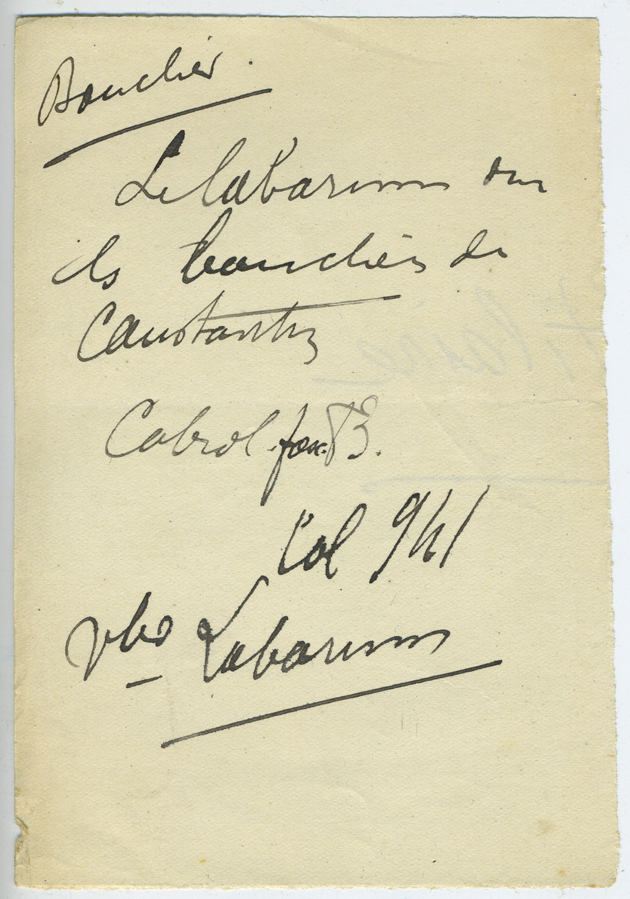 Bouclier.
Le labarum sur
les boucliers de
Constantin
Cabrol fasc 83.
Col 941
Vbo Labarum